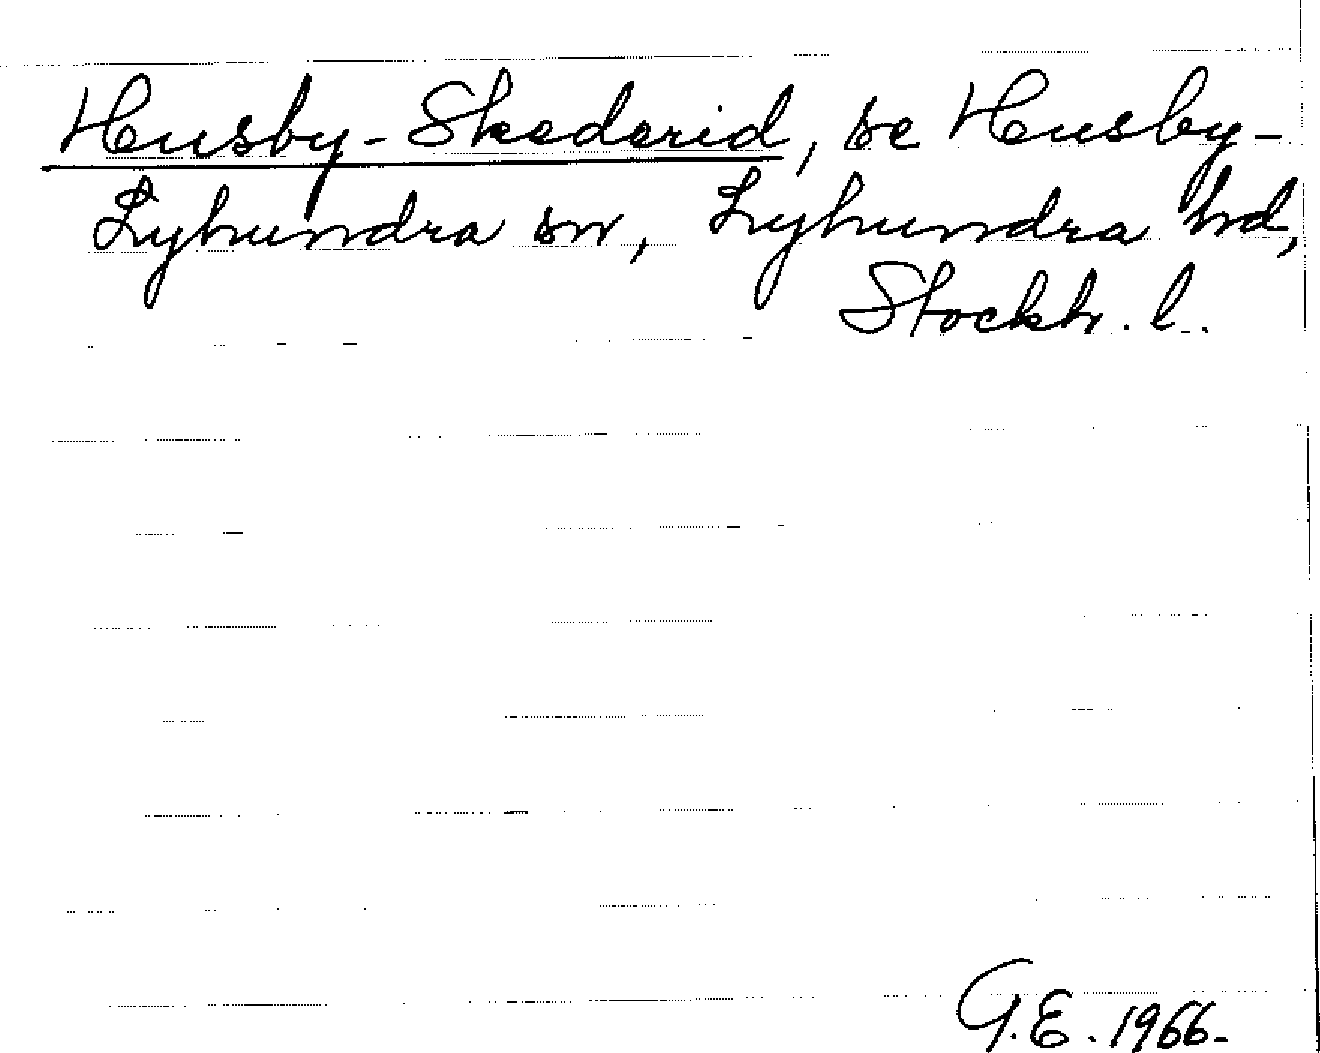 Husby-Skederid, se Husby-
Lyhundra sn, Lyhundra hd,
Stockh. l.
G.E. 1966.